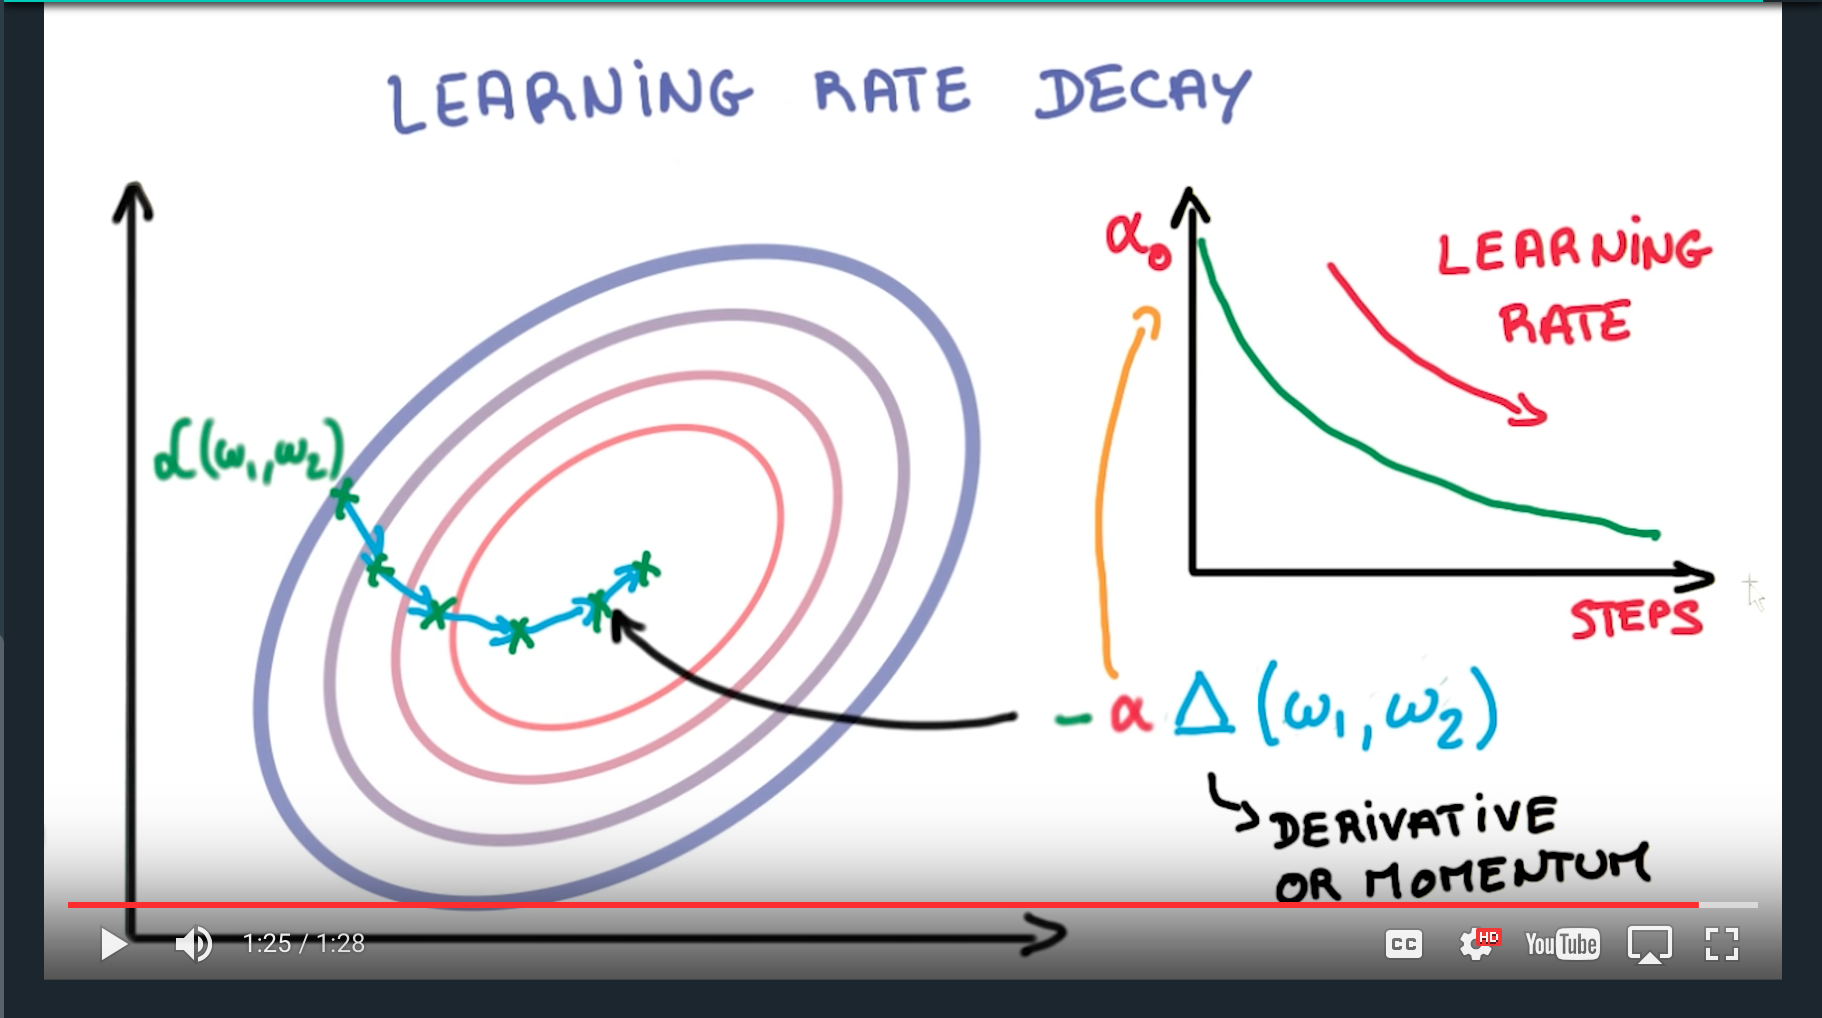 LEARNING RATE DECAY
α₀
LEARNING
RATE
ℒ(ω₁,ω₂)
STEPS
-α Δ(ω₁,ω₂)
DERIVATIVE
OR MOMENTUM
1:25 / 1:28
CC
HD
YouTube